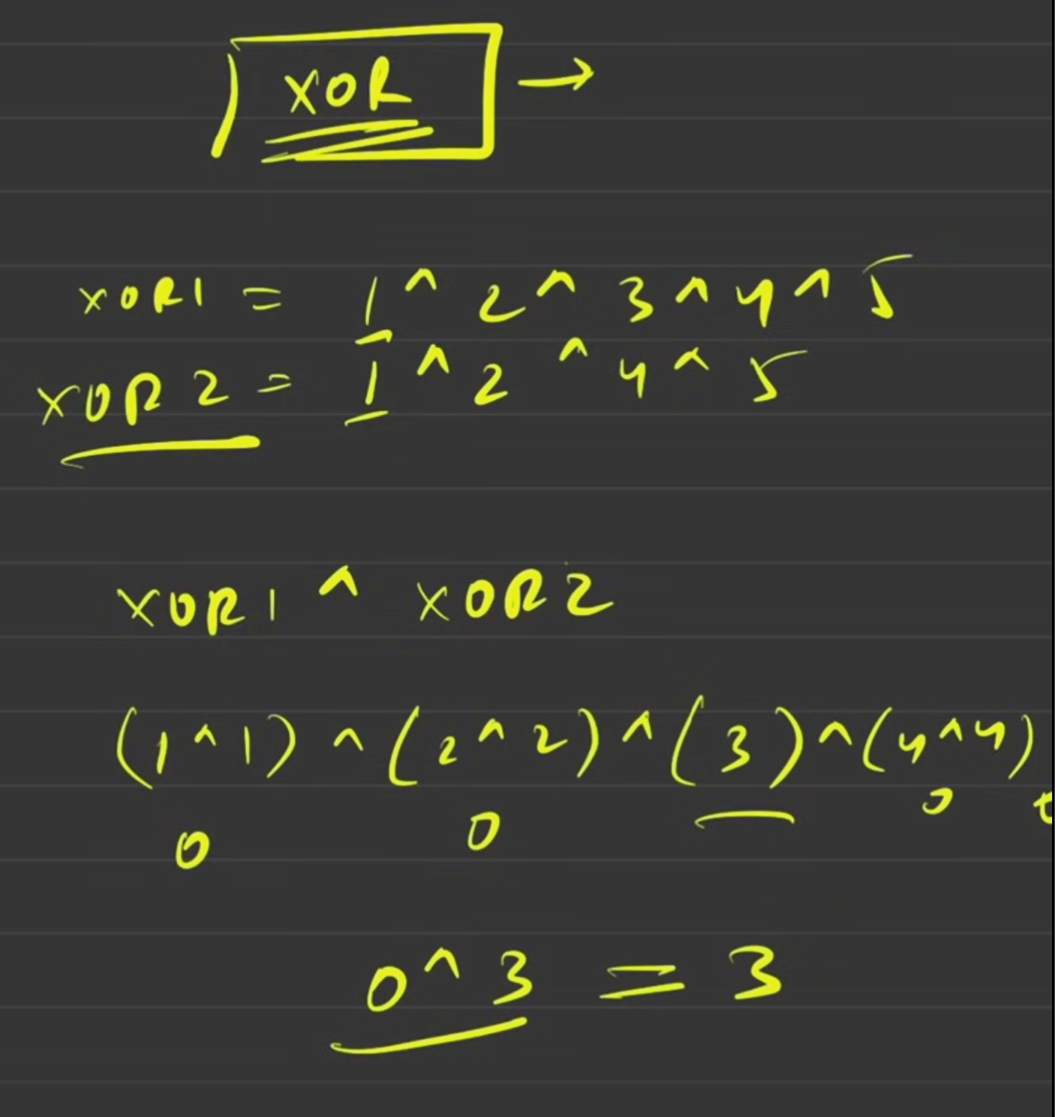 XOR →
XOR1 = 1 ^ 2 ^ 3 ^ 4 ^ 5
XOR2 = 1 ^ 2 ^ 4 ^ 5
XOR1 ^ XOR2
(1 ^ 1) ^ (2 ^ 2) ^ (3) ^ (4 ^ 4)
0 0 0
0 ^ 3 = 3